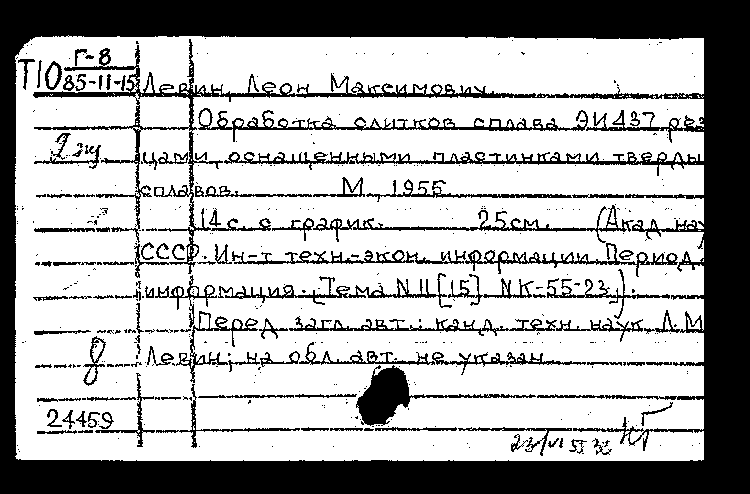 Т10 Г-8
85-11-15
Левин, Леон Максимович.
Обработка слитков сплава ЭИ437 рез
2 эку.
цами, оснащенными пластинками тверды
сплавов. М., 1955.
14 с. с график. 25см. (Акад. нау
СССР. Ин-т техн.-экон. информации. Период.
информация. [Тема N 11[15] NК-55-23]).
Перед загл. авт.: канд. техн. наук Л.М.
Левин; на обл. авт. не указан
24459